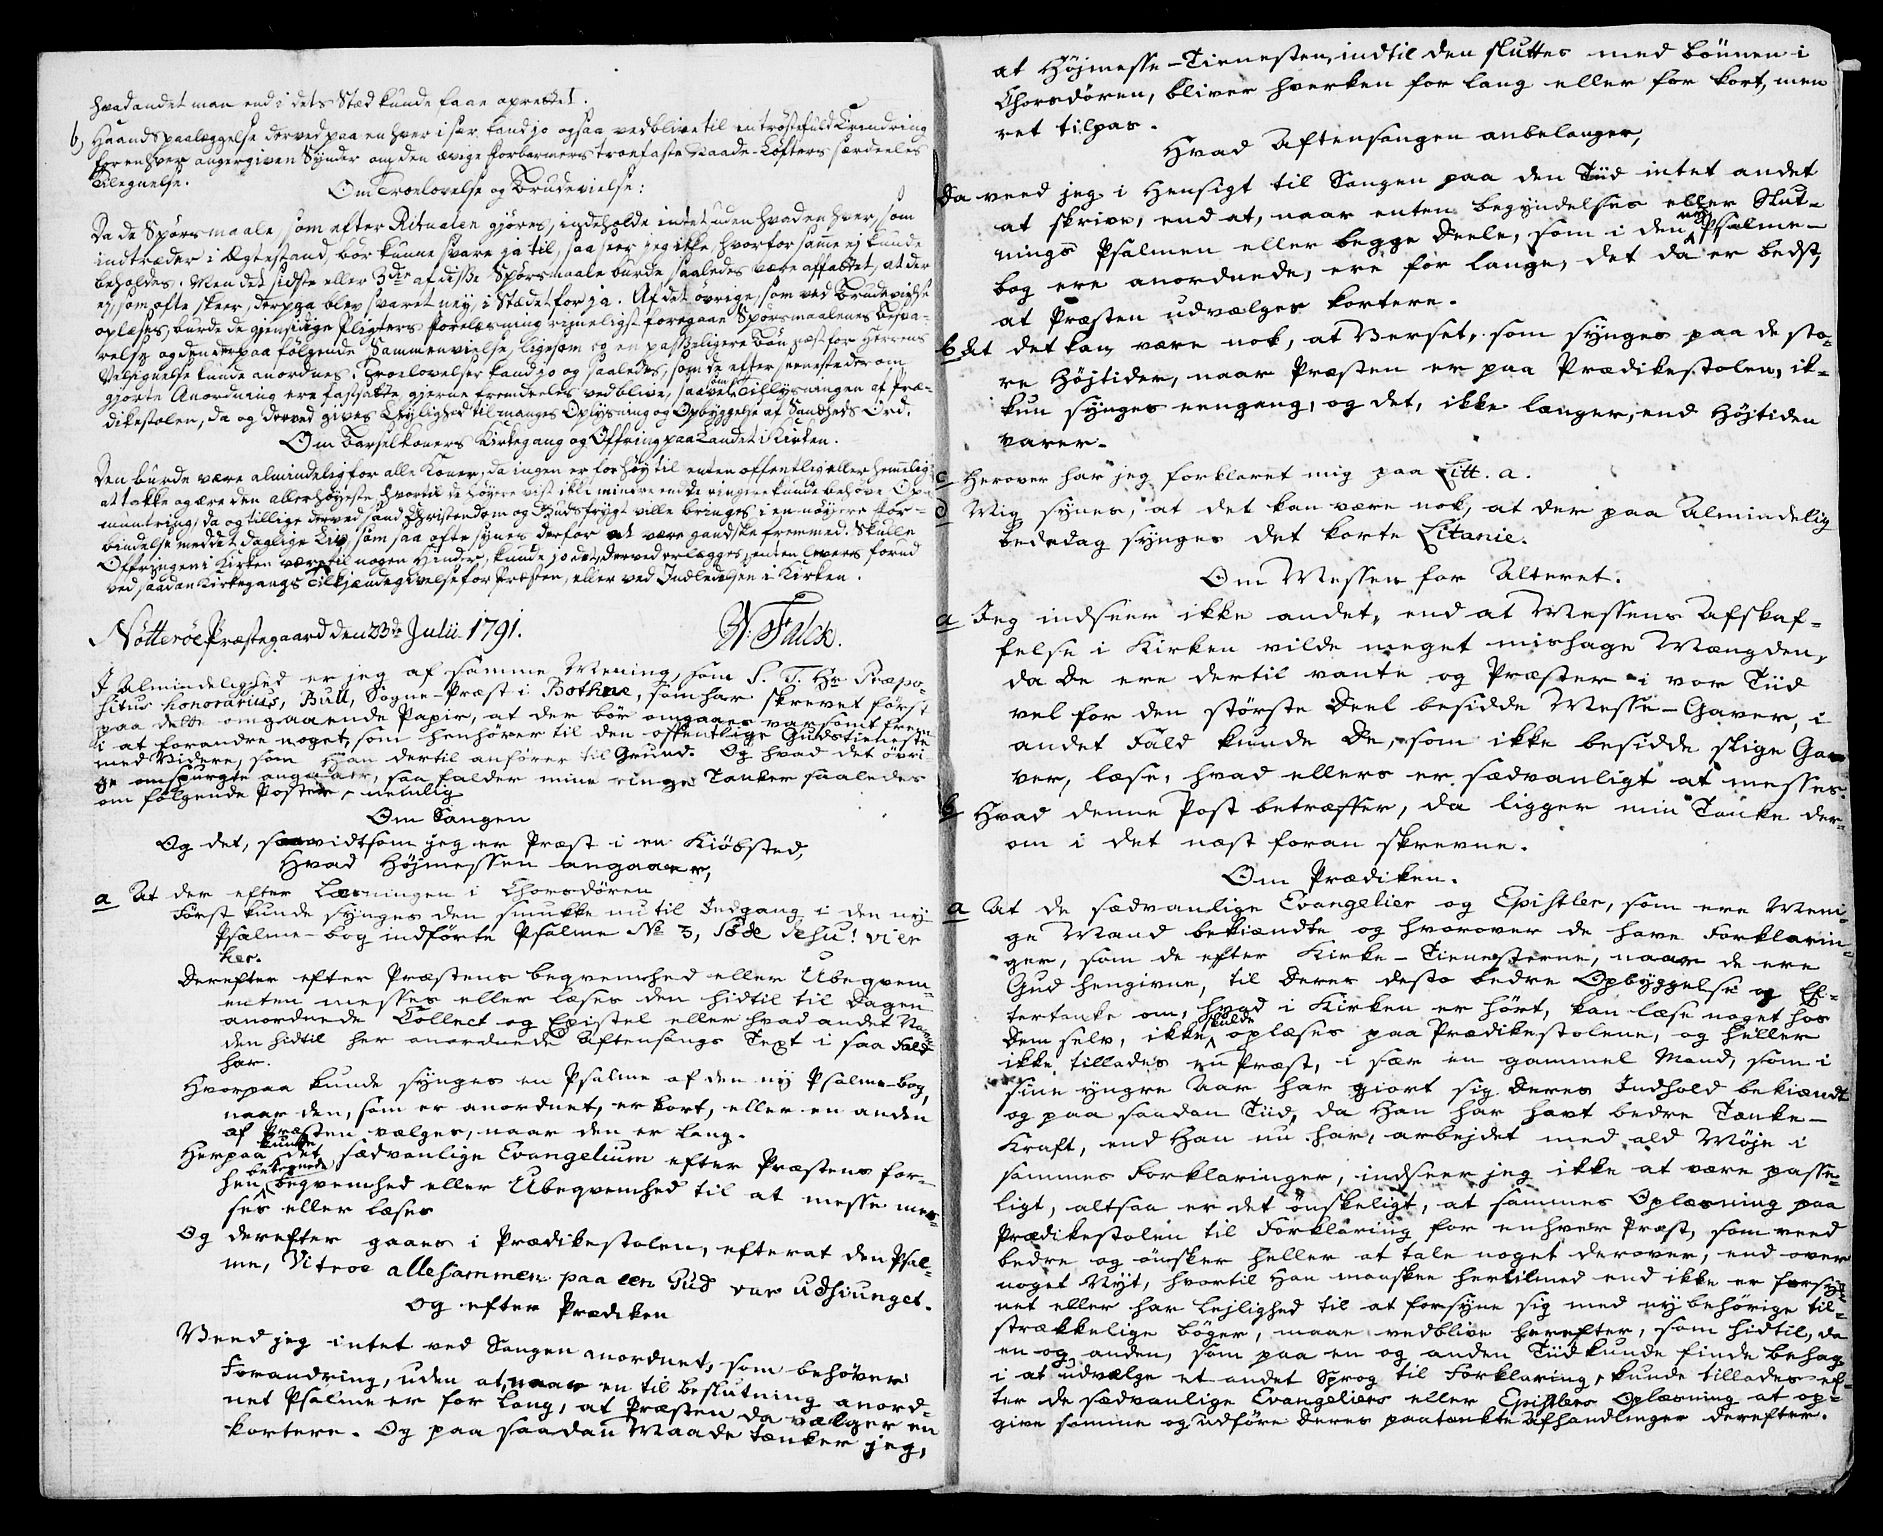 hvad andet man end i dets Stæd kunde faae oprettet.
b, Haands paalæggelse derved paa en hver i sær kand jo ogsaa vedblive til en trøstefuld Erindring
for en hver angergiven Synder om den ævige Forbarmers troefaste Naade-Løfters særdeeles
Tilegnelse.
Om Troelovelse og Brudevielse:
Da de Spørsmaale, som efter Ritualen gjøres, indeholde intet uden hvad en hver, som
indtræder i Ægtestand, bør kunne svare ja til, saa seer jeg ikke, hvorfor same ej kunde
beholdes. Men det sidste eller 3die af disse Spørsmaale burde saaledes være affattet, at der
ej, som ofte skeer, derpaa blev svaret ney, i Stædet for ja. Af det øvrige, som ved Brudevielse
oplæses, burde de gjensidige Pligters Forelæsning rimeligst foregaae Spørsmaalenes Besva-
relse og den derpaa følgende Sammenvielse, ligesom og en passeligere Bøn næst for Herrens
Velsignelse kunde anordnes. Troelovelser kand jo og saaledes, som de efter seeneste derom
gjorte Anordning ere fastsatte, gjerne fremdeeles vedblive, saavel som Tillysningen af Præ-
dikestolen, da og derved gives Leylighed til manges Oplysning og Opbyggelse af Sandheds Ord.
Om Barselkoners Kirkegang og Offring paa Landet i Kirken.
Den burde være almindelig for alle Koner, da ingen er for høy til enten offentlig eller hemelig
at takke og ære den allerhøyeste, hvortil de høyere vist ikke mindre end de ringere kunde behøve Op-
muntring, da og tillige derved sand Christendom og Gudsfrygt ville bringes i en nøyere For-
bindelse med det daglige Liv, som saa ofte synes derfor at være gandske fremmed. Skulle
Offringen i Kirken være til nogen Hinder, kunde jo det derved erlægges, enten levers forud
ved saadan Kirkegangs Tilkjendegivelse for Præsten, eller ved Indledelsen i Kirken.
Nøtterøe Præstegaard den 23de Julii 1791. N: Falck.
I Almindelighed er jeg af samme Mening, som S. T. Hr Præpo-
situs honorarius, Bull, Sogne-Præst i Bothne, som har skrevet først
paa dette omgaaende Papir, at der bør omgaaes varsomt frem
i at forandre noget, som henhører til den offentlige Gudstieneste
med Videre, som Han dertil anfører til Grund. Og hvad det øvri-
ge omspurgte angaaer, saa falder mine ringe Tanker saaledes
om følgende Poster, nemlig
Om Sangen
Og det, saavidt som jeg er Præst i en Kiøbsted,
Hvad Højmessen angaaer,
a At der efter Læsningen i Chorsdøren
Først kunde synges den smukke nu til Indgang i den ny
Psalme-bog indførte Psalme No 3, Søde Jesu! vi er
her.
Derefter efter Præstens beqvemhed eller Ubeqvem-
enten messes eller læses den hidtil til Dagen
anordnede Collect og Epistel eller hvad andet Navn
den hidtil her anordnede Aftensangs Text i saa Fald
har.
Hvorpaa kunde synges en Psalme af den ny Psalme-bog,
naar den, som er anordnet, er kort, eller en anden
af Præsten vælges, naar den er lang.
Herpaa kunde det sædvanlige Evangelium efter Præstens for-
hen betegnede beqvemhed eller Ubeqvemhed til at messe mes-
ses eller læses
Og derefter gaaes i Prædikestolen, efterat den Psal-
me, Vi troe allesammen paa een Gud var udsiunget.
Og efter Prædiken
Veed jeg intet ved Sangen anordnet, som behøver
Forandring, uden at, naar en til beslutning anord-
net Psalme er for lang, at Præsten da vælger en
kortere. Og paa saadan Maade tænker jeg,
at Højmesse-Tienesten, indtil den sluttes med bønnen i
Chorsdøren, bliver hverken for lang eller for kort, men
ret tilpas.
Hvad Aftensangen anbelanger,
Da veed jeg i Hensigt til Sangen paa den Tiid intet andet
at skrive, end at, naar enten begyndelses eller Slut-
nings Psalmen eller begge Deele, som i den ny Psalme-
bog ere anordnede, ere for lange, det da er bedst,
at Præsten udvælger kortere.
b At det kan være nok, at Verset, som synges paa de sto-
re Højtider, naar Præsten er paa Prædikestolen, ik-
kun synges eengang, og det, ikke længer, end Højtiden
varer.
c Herover har jeg forklaret mig paa Litt. a.
d Mig synes, at det kan være nok, at der paa Almindelig
bededag synges det korte Litanie.
Om Messen for Alteret.
a Jeg indseer ikke andet, end at Messens Afskaf-
felse i Kirken vilde meget mishage Mængden,
da De ere dertil vante og Præster i vor Tiid
vel for den største Deel besidde Messe-Gaver, i
andet Fald kunde De, som ikke besidde slige Ga-
ver, læse, hvad ellers er sædvanligt at messes.
b Hvad denne Post betræffer, da ligger min Tanke der-
om i det næst foran skrevne.
Om Prædiken.
a At de sædvanlige Evangelier og Epistler, som ere Meni-
ge Mand bekiændte og hvorover de have Forklarin-
ger, som de efter Kirke-Tienesterne, naar de ere
Gud hengivne, til Deres desto bedre Opbyggelse og Ef-
tertanke om, hvad i Kirken er hørt, kan læse noget hos
Dem selv, ikke skulde oplæses paa Prædikestolene, og heller
ikke tillades en Præst, i sær en gammel Mand, som i
sine yngre Aar har giort sig Deres Indhold bekiændt
og paa saadan Tiid, da Han har havt bedre Tænke-
Kraft, end Han nu har, arbejdet med ald Møje i
sammes Forklaringer, indseer jeg ikke at være passe-
ligt, altsaa er det ønskeligt, at sammes Oplæsning paa
Prædikestolen til Forklaring for enhver Præst, som veed
bedre og ønsker heller at tale noget derover, end over
noget Nyt, hvortil Han maaskee hertilmed end ikke er forsy-
net eller har Lejlighed til at forsyne sig med ny behørige til-
strækkelige bøger, maae vedblive herefter, som hidtil, da
en og anden, som paa en og anden Tiid kunde finde behag
i at udvælge et andet Sprog til Forklaring, kunde tillades ef-
ter de sædvanlige Evangeliers eller Epistlers Oplæsning at op-
give samme og udføre Deres paatænkte Afhandlinger derefter.